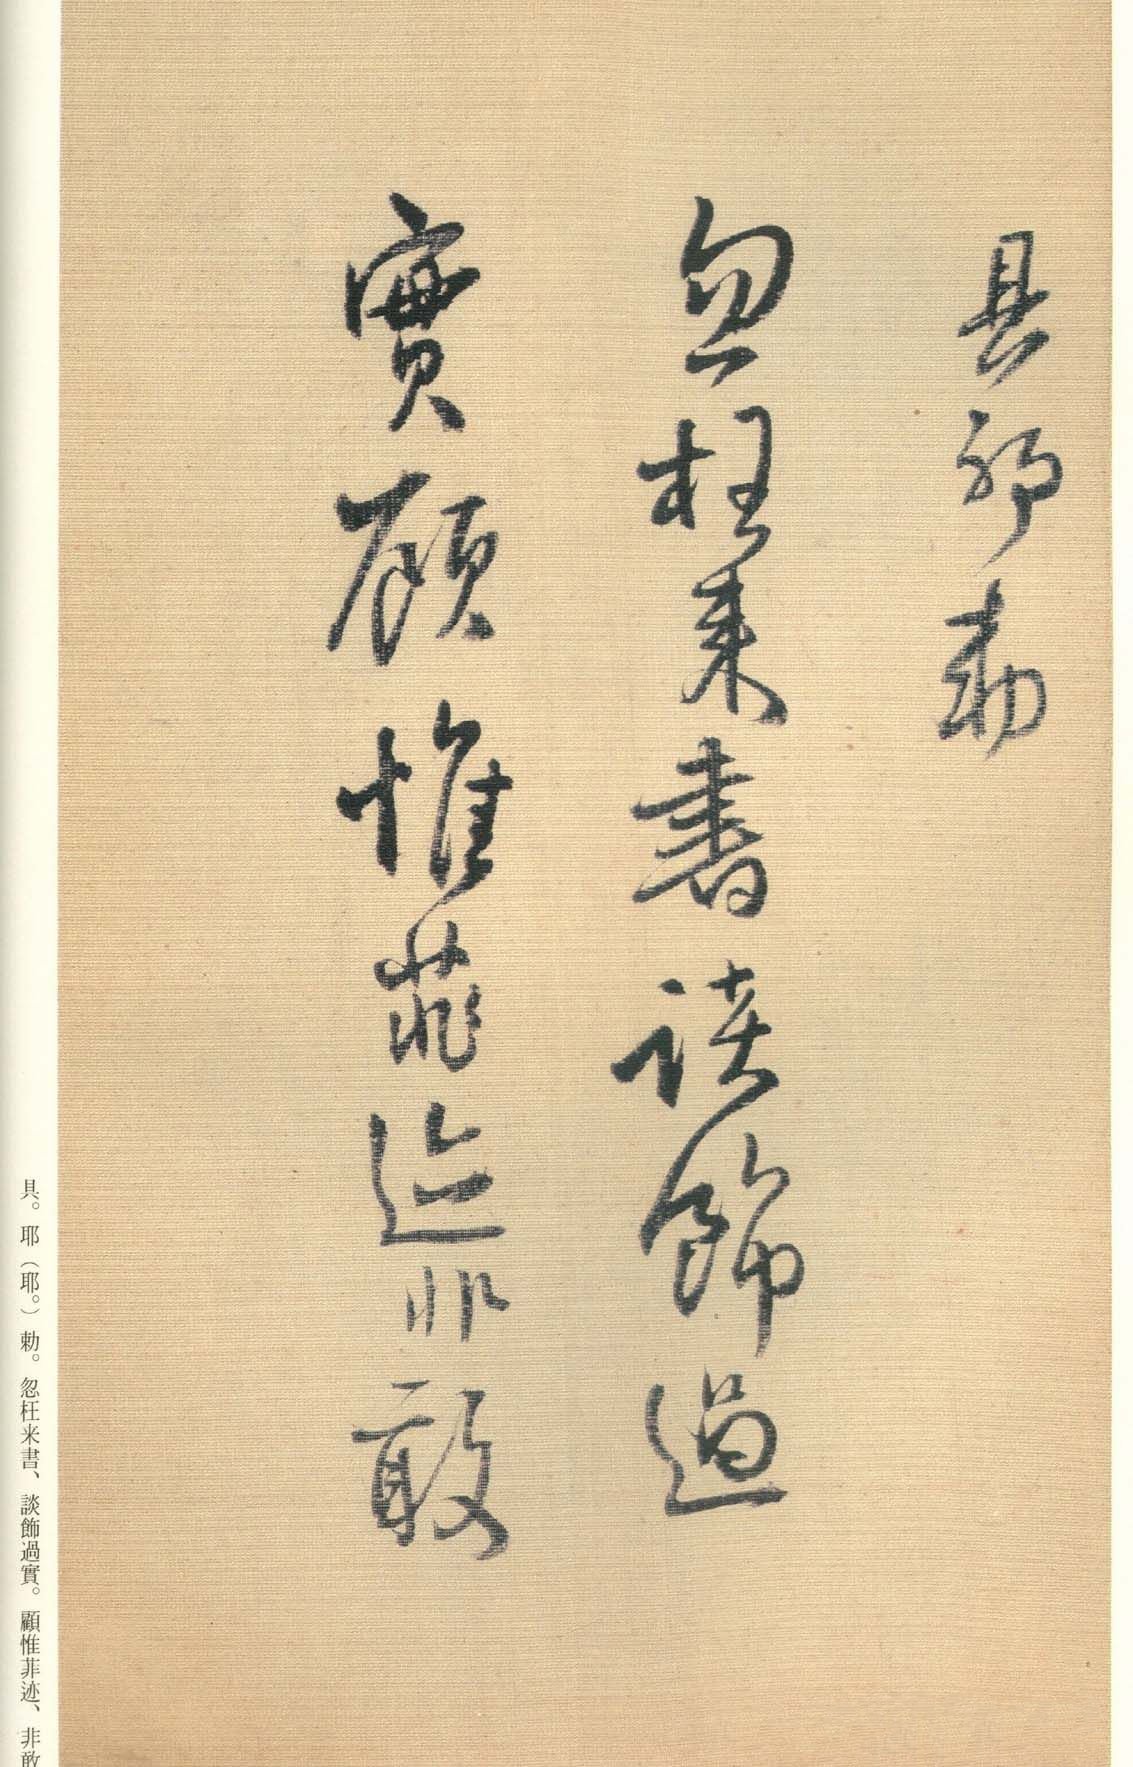 具耶勅
忽枉来書談飾過
實顧惟菲迹非敢
具。耶（耶。）勅。忽枉来書、談飾過實。顧惟菲迹、非敢